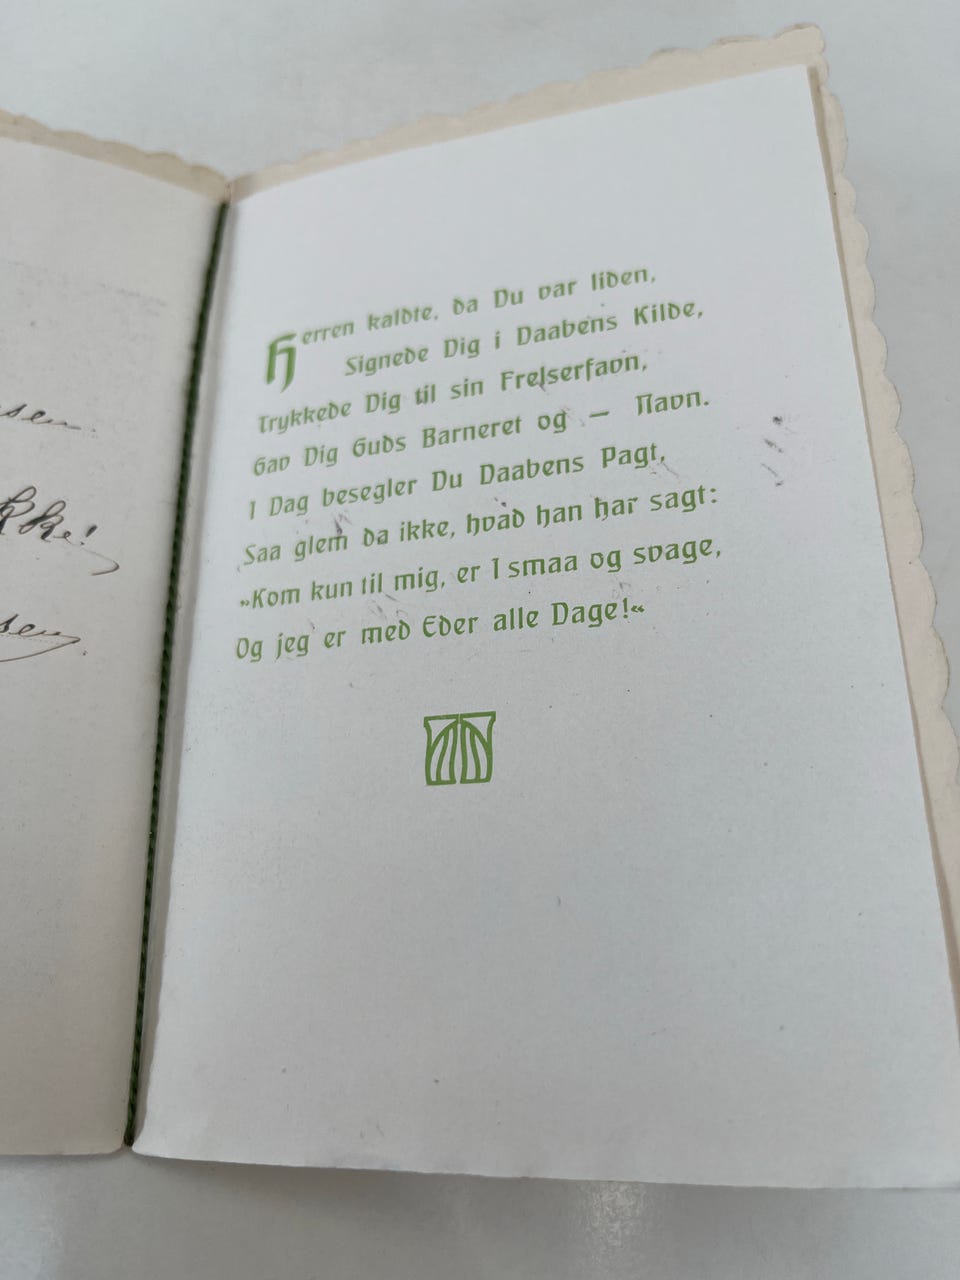 Herren kaldte, da Du var liden,
Signede Dig i Daabens Kilde,
Trykkede Dig til sin Frelserfavn,
Gav Dig Guds Barneret og — Navn.
I Dag besegler Du Daabens Pagt,
Saa glem da ikke, hvad han har sagt:
»Kom kun til mig, er I smaa og svage,
Og jeg er med Eder alle Dage!«